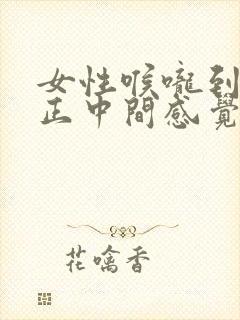 女性喉嚨到
正中間感覺
花噙香